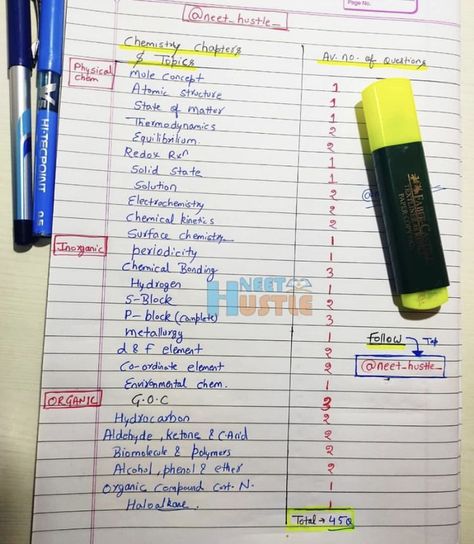 @neet_hustle_
Page No.
Chemistry Chapters & Topics
Av. no. of Questions
Physical chem
Mole concept 1
Atomic structure 1
State of matter 1
Thermodynamics 2
Equilibrium 2
Redox Rxⁿ 1
Solid State 1
Solution 2
Electrochemistry 2
Chemical kinetics 2
Surface chemistry 1
Inorganic
periodicity 1
Chemical Bonding 3
Hydrogen 1
S-Block 2
P-block (complete) 3
metallurgy 1
d & f element 2
Co-ordinate element 2
Environmental chem. 1
ORGANIC
G.O.C 3
Hydrocarbon 2
Aldehyde, ketone & CAcid 2
Biomolecule & polymers 2
Alcohol, phenol & ether 2
Organic Compound Cont. N. 1
Haloalkane. 1
Total → 45Q
Follow
@neet_hustle_
NEET HUSTLE
HI-TECPOINT